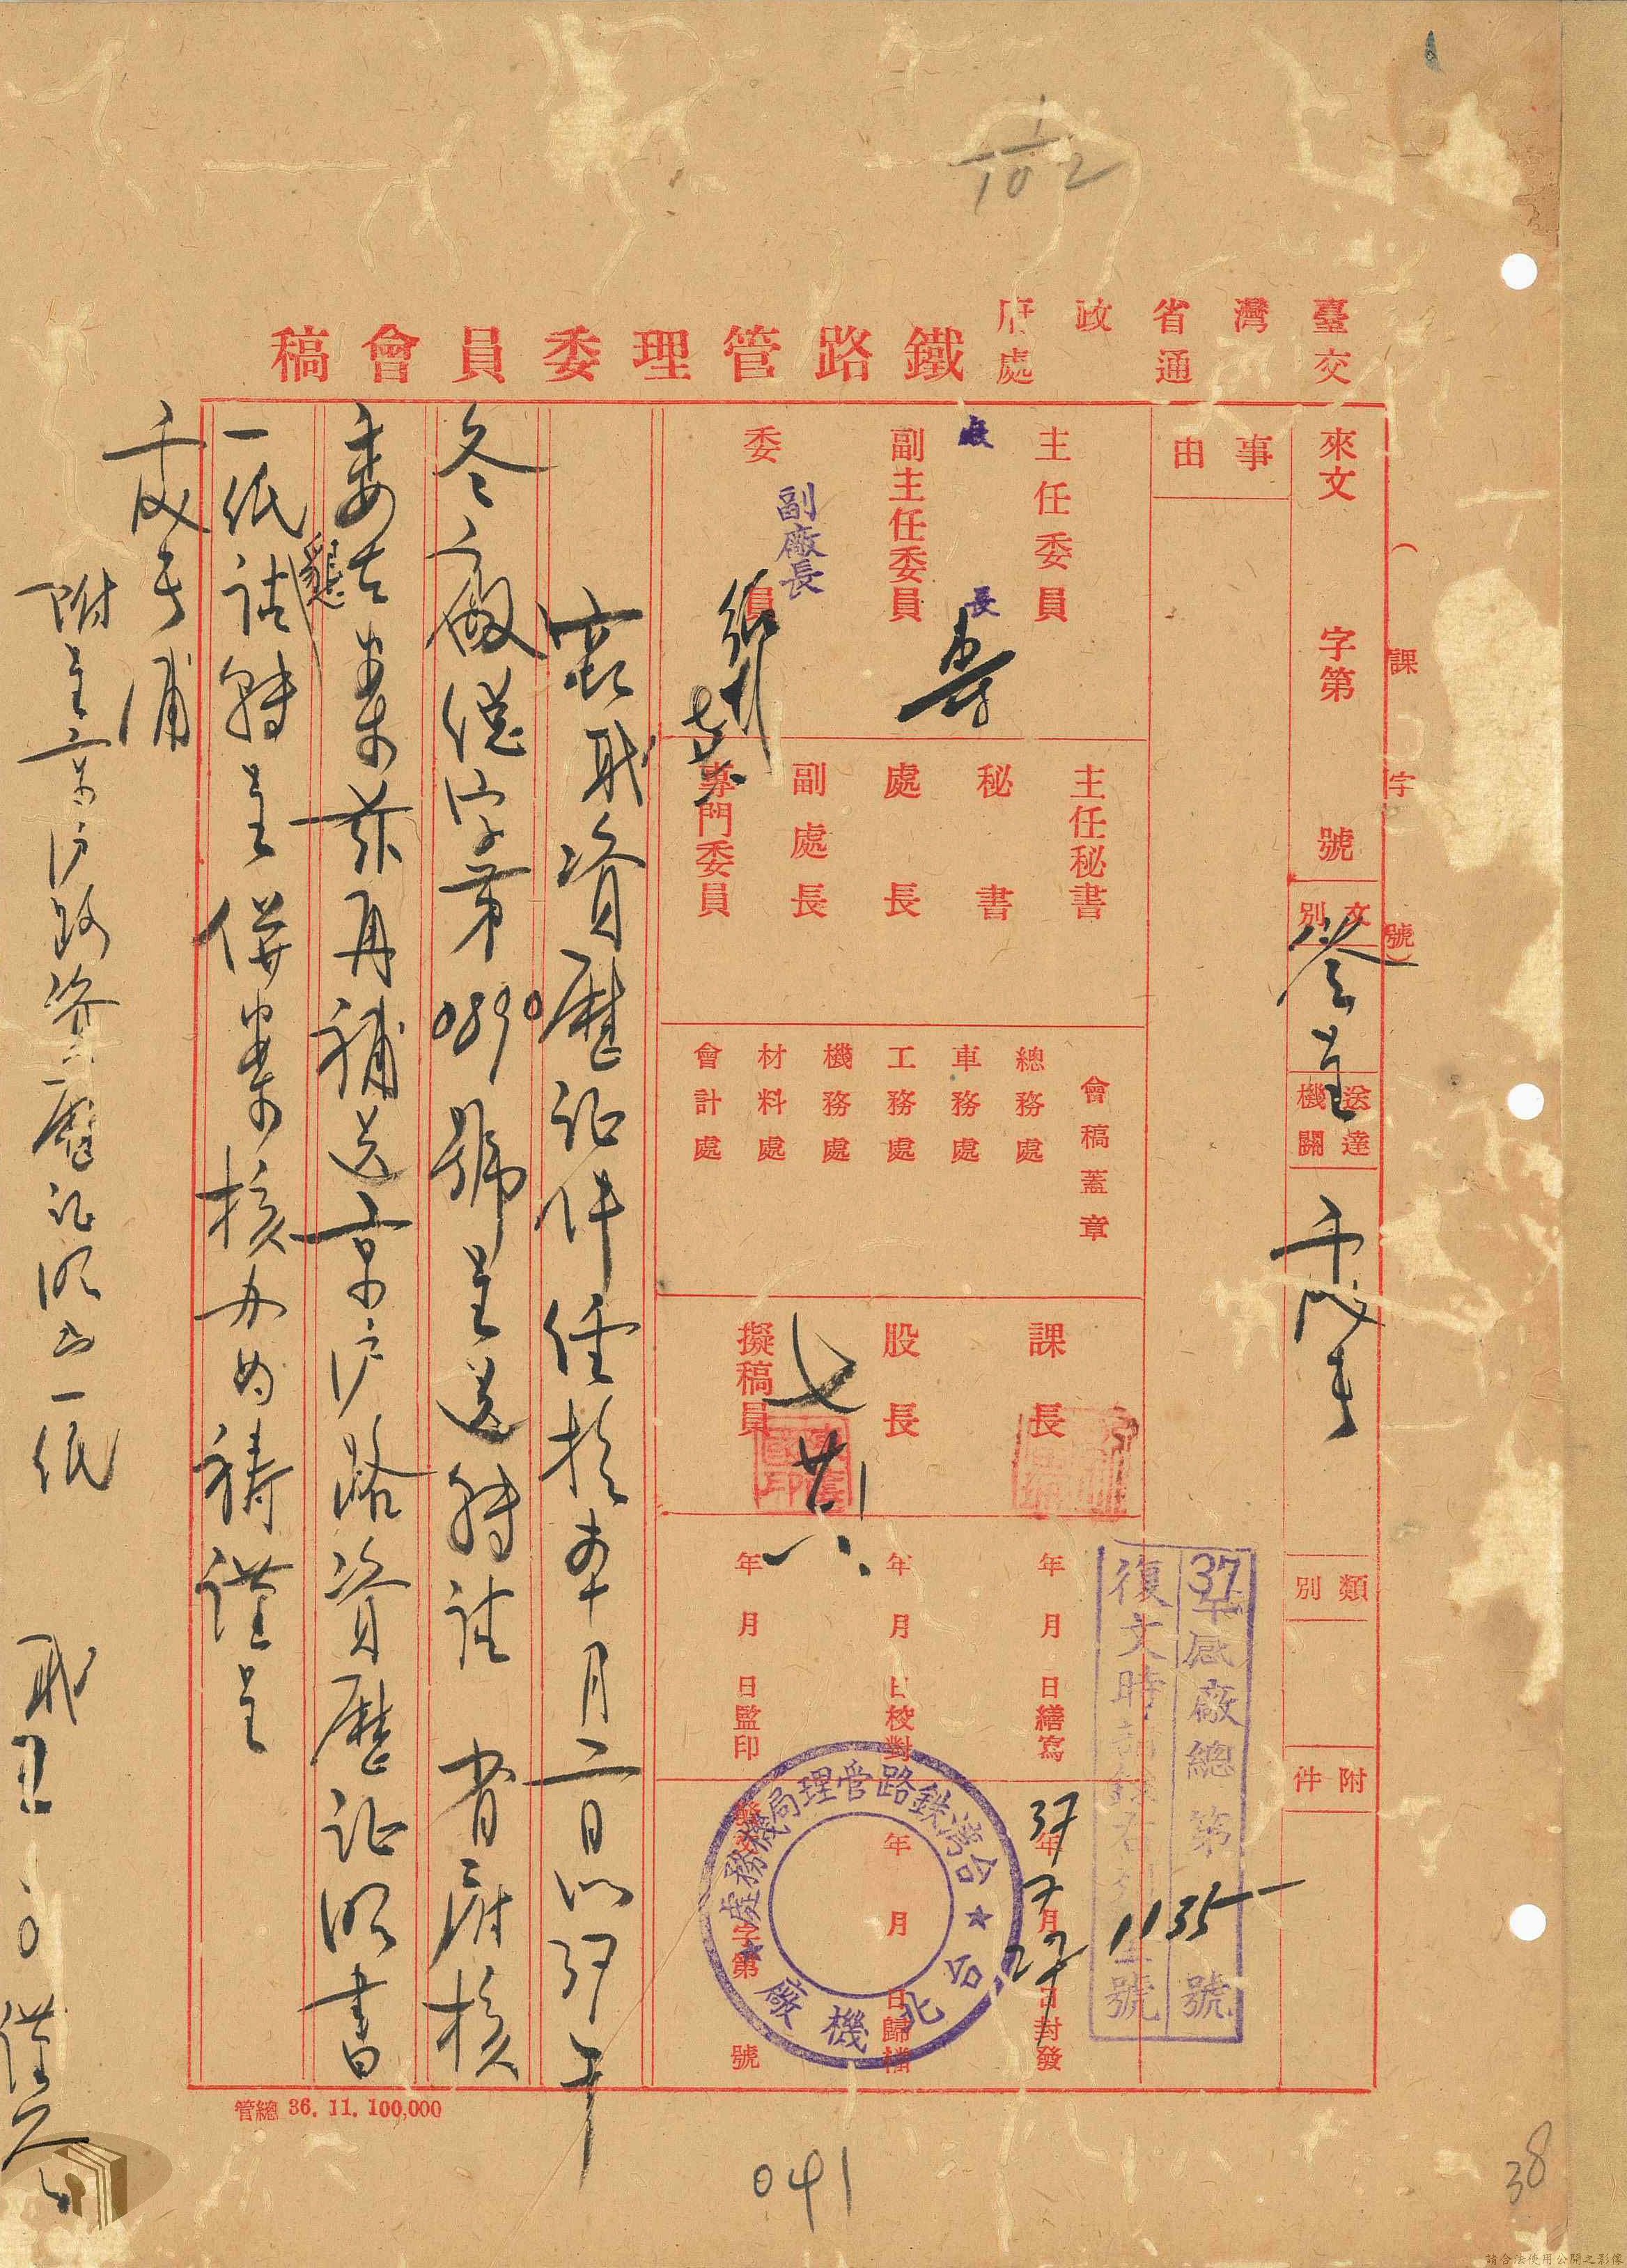 臺灣省政府
交通處
鐵路管理委員會稿
（課字號）
來文 字第 號
文別
簽呈
送達機關
類別
附件
事由
主任委員
廠長
副主任委員
委員
副廠長
主任秘書
秘書
處長
副處長
專門委員
會稿蓋章
總務處
車務處
工務處
機務處
材料處
會計處
課長
股長
擬稿員
七
年月日繕寫
年月日校對
年月日監印
37年7月27日封發
年月日歸檔
字第 號
37 廠總第1135號
復文時請錄右列 號
台灣鉄路管理局機務處
台北機廠
竊職資歷証件經於本月二日以37午
冬 廠總字第0890號呈送轉請 省府核
委在案茲再補送京沪路資歷証明書
一紙請懇轉呈併案核办为禱謹呈
附呈京沪路資歷証明书一紙
職 王
謹呈
管總 36. 11. 100,000
1/102
041
38
請合法使用公開之影像